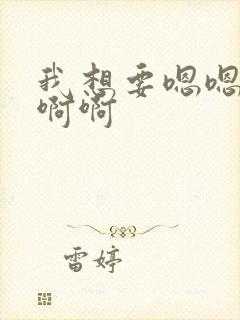 我想要嗯嗯
啊啊
雷婷